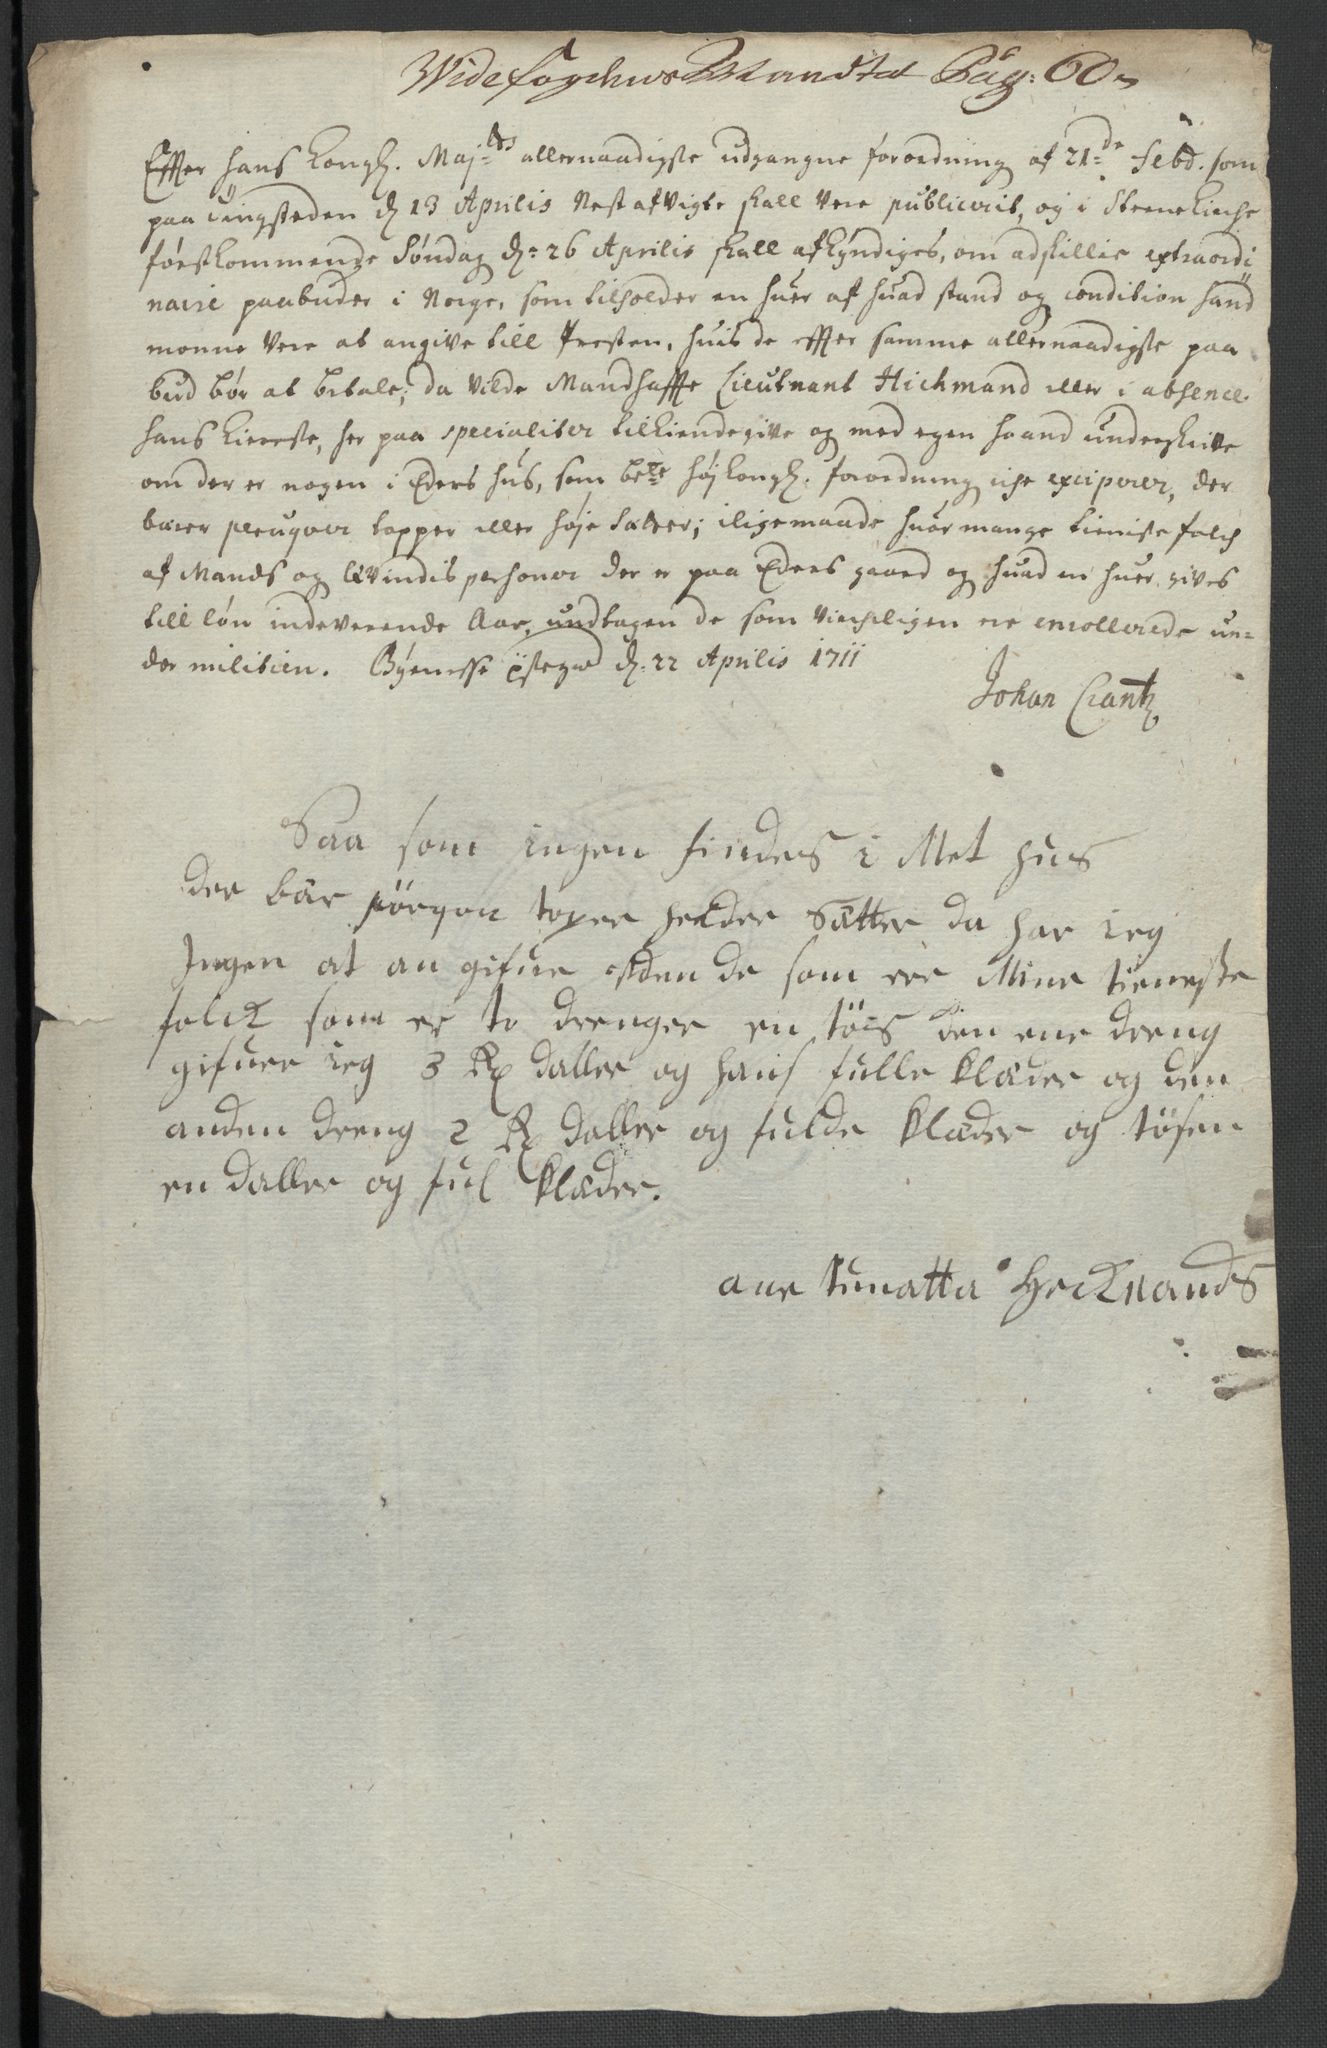 Wide fogdens Mandtal Pag: 60
Effter hans Kongl. Maj:ts allernaadigste udgangne forordning af 21:de Febr. som
paa tingsteden d 13 Aprilis Nest afvigte skall vere publicerit, og i Steene Kirche
førstkommende Søndag d: 26 Aprilis skall afkyndiges, om adskillie extraordi
naire paabuder i Norge, som tilholder en huer af huad stand og condition hand
monne vere at angive till Presten, huis de effter samme allernaadigste paa
bud bør at betale; da vilde Mandhaffte Lieutnant Hichmand eller i absence
hans Kiereste, her paa specialiter tilkiendegive og med egen haand underskrive
om der er nogen i Eders hus, som bete høj kongl. forordning iche exciperer, der
bærer peruquer topper eller høje setter; iligemaade huor mange tieniste folch
af Mands og Qvindis personer der er paa Eders gaard og huad en huer gives
till løn indeverende Aar, undtagen de som vircheligen ere enrollerede un=
der militien. Bynesse d: 22 Aprilis 1711
Johan Crantz
Saa som ingen findes i Met hus
der bär pörqon toper helder Sätter da har ieg
Ingen at an gifue uden de som ere Mine tieneste
folck som er to drenger en tös den ene dreng
gifuer ieg 3 Rx daller og hans fulle klæder og den
anden dreng 2 Rx daller og fulde klæder og tösen
en daller og ful klæder.
ane Heckmands